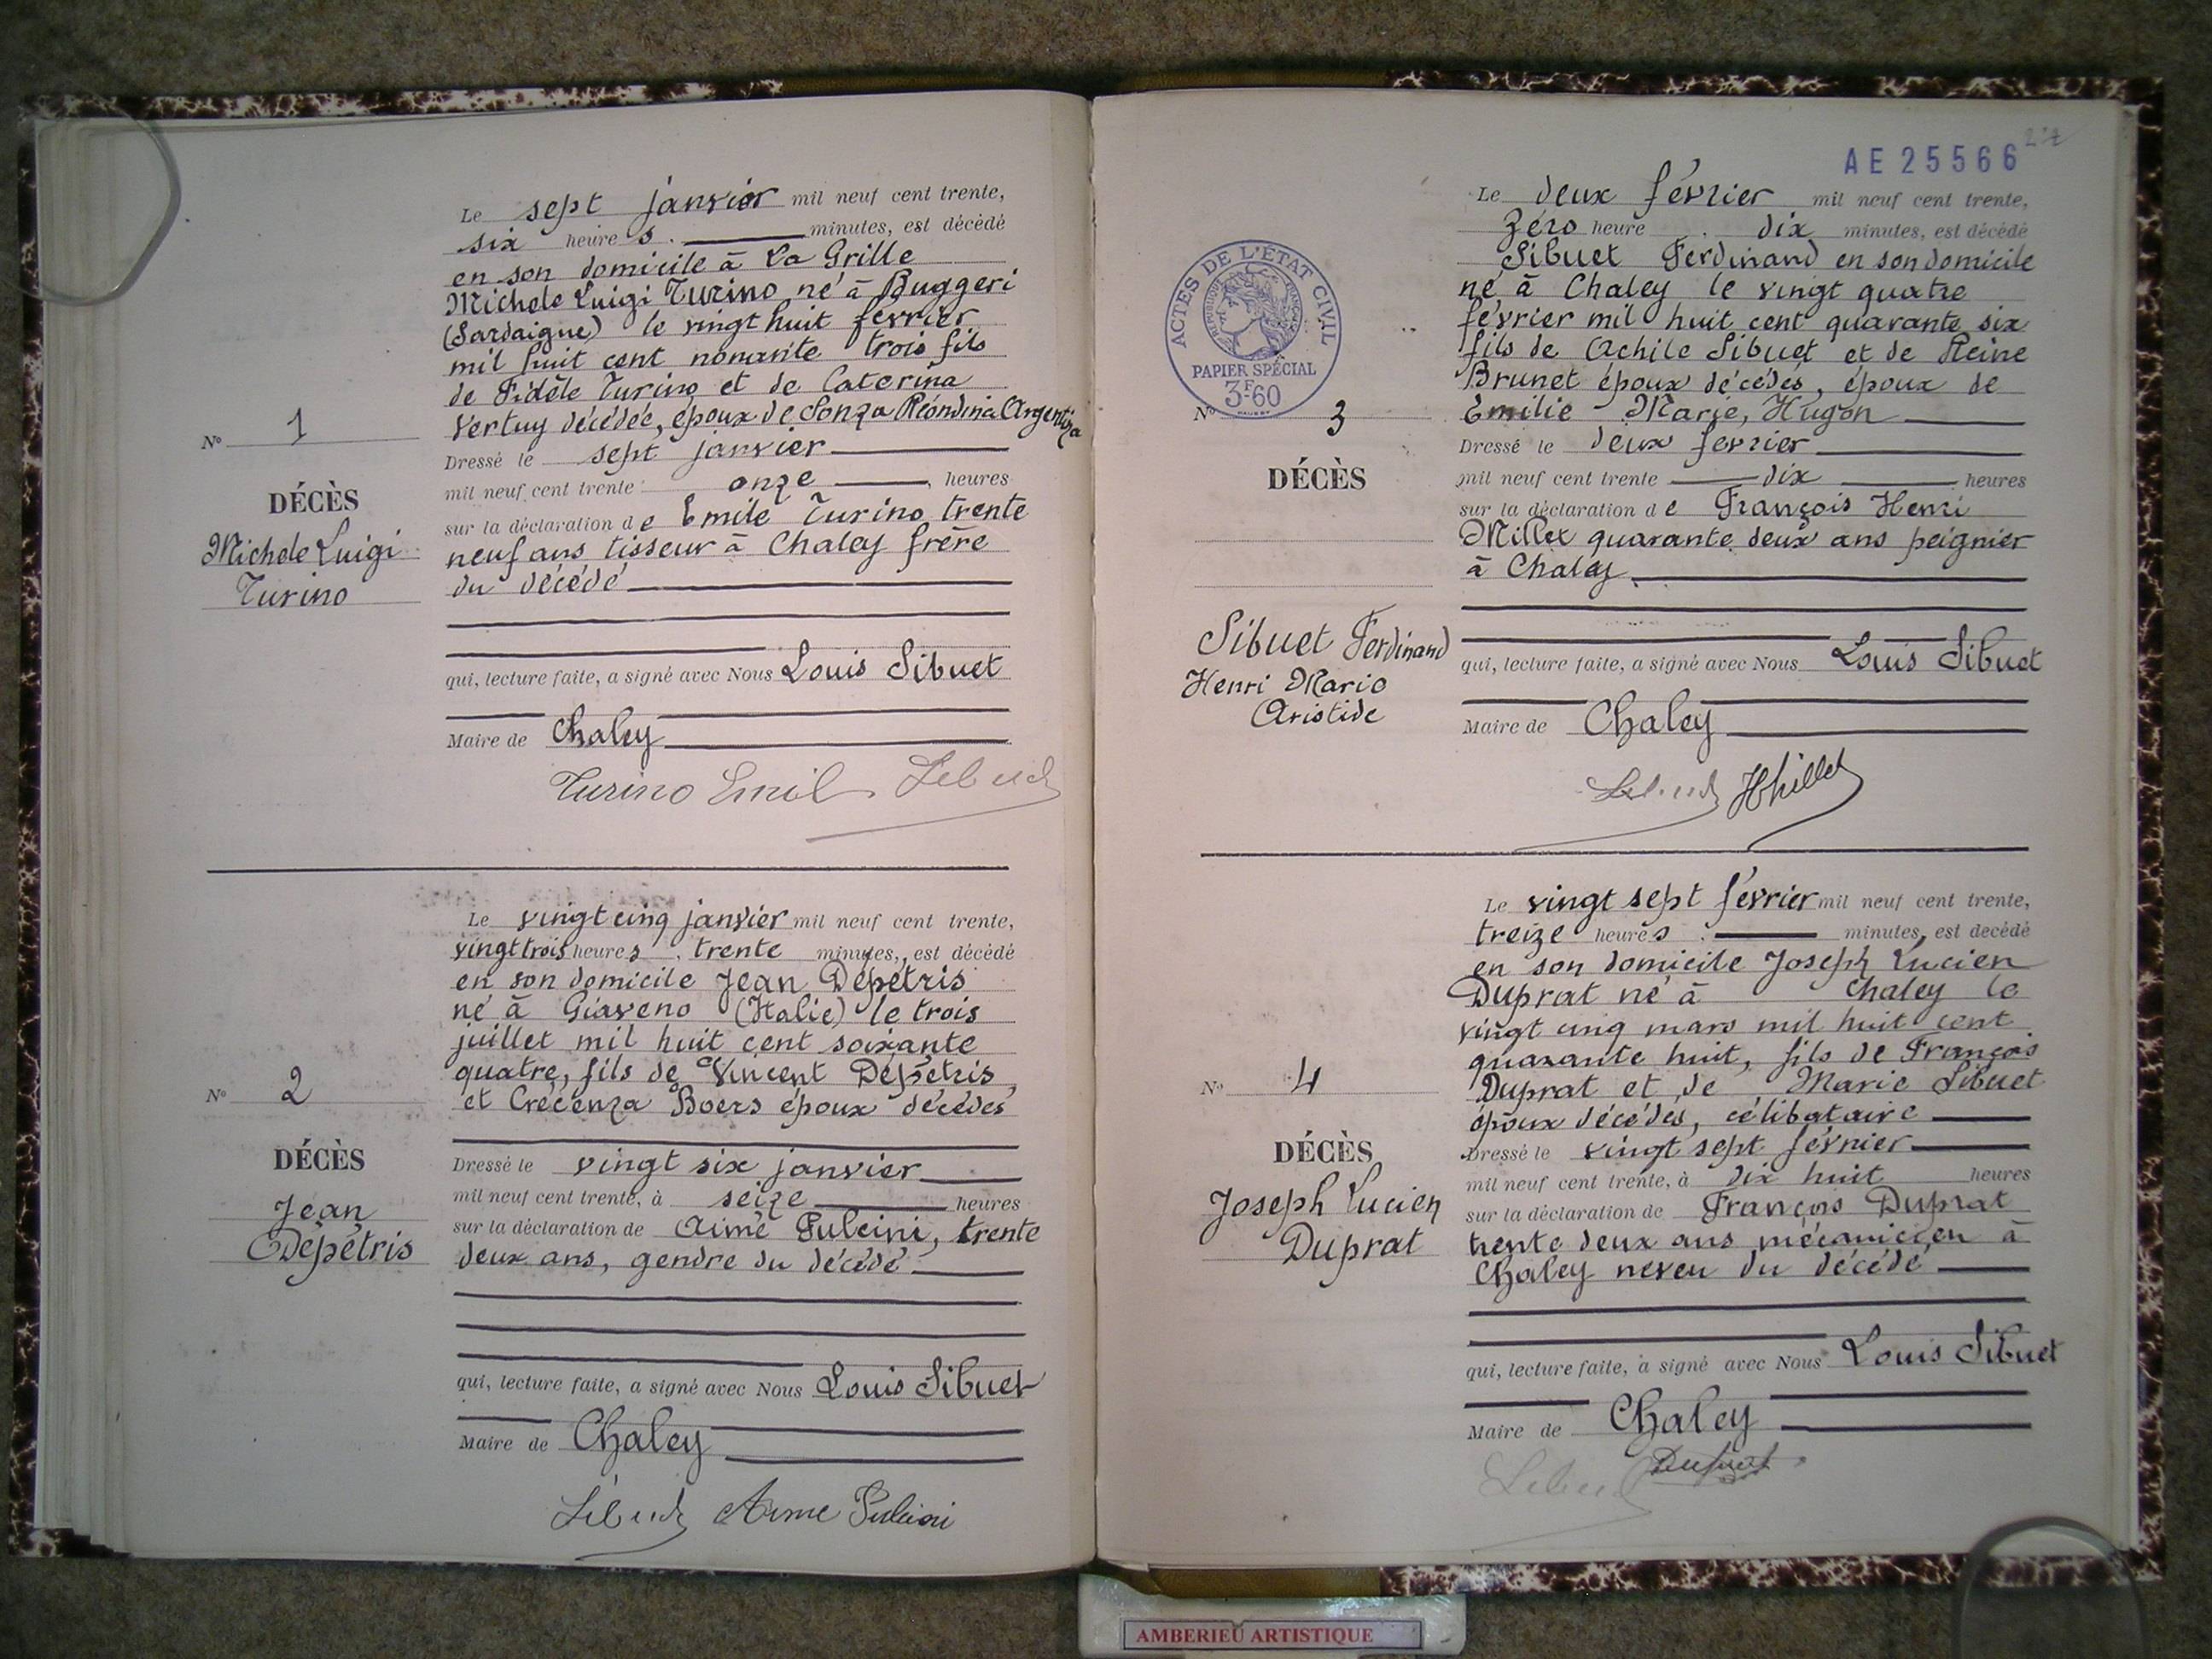 Le sept janvier mil neuf cent trente,
six heures. minutes, est décédé
en son domicile à La Grille
Michele Luigi Turino né à Buggeri
(Sardaigne) le vingt huit fevrier
mil huit cent nonante trois fils
de Fidèle Turino et de Caterina
Vertuy décédée, époux de Sonza Réondina Argentina
Nº 1
Dressé le sept janvier
mil neuf cent trente onze heures
DÉCÈS
sur la déclaration de Emile Turino trente
Michele Luigi
neuf ans tisseur à Chaley frère
Turino
du décédé
qui, lecture faite, a signé avec Nous Louis Sibuet
Maire de Chaley
Turino Emil Sibuet
Le vingt cinq janvier mil neuf cent trente,
vingt trois heures. trente minutes, est décédé
en son domicile Jean Dépétris
né à Giaveno (Italie) le trois
juillet mil huit cent soixante
quatre, fils de Vincent Dépétris,
Nº 2
et Crécenza Boers époux décédés
DÉCÈS
Dressé le vingt six janvier
mil neuf cent trente, à seize heures
Jean
sur la déclaration de Aimé Pulcini, trente
Dépétris
deux ans, gendre du décédé
qui, lecture faite, a signé avec Nous Louis Sibuet
Maire de Chaley
Sibuet Aime Pulcini
AE 25566
Le deux février mil neuf cent trente,
Zéro heure. dix minutes, est décédé
Sibuet Ferdinand en son domicile
né à Chaley le vingt quatre
février mil huit cent quarante six
fils de Achile Sibuet et de Reine
Brunet époux décédés, époux de
Emilie Marie, Hugon
ACTES DE L'ÉTAT CIVIL
RÉPUBLIQUE FRANÇAISE
PAPIER SPÉCIAL
3F60
Nº 3
Dressé le deux fevrier
DÉCÈS
mil neuf cent trente dix heures
sur la déclaration de François Henri
Millet quarante deux ans peignier
à Chaley
Sibuet Ferdinand
Henri Mario
Aristide
qui, lecture faite, a signé avec Nous Louis Sibuet
Maire de Chaley
Sibuet HMillet
Le vingt sept février mil neuf cent trente,
treize heures. minutes, est décédé
en son domicile Joseph Lucien
Duprat né à Chaley le
vingt cinq mars mil huit cent
quarante huit, fils de François
Duprat et de Marie Sibuet
Nº 4
époux décédés, célibataire
DÉCÈS
Dressé le vingt sept février
mil neuf cent trente, à dix huit heures
Joseph Lucien
sur la déclaration de François Duprat
Duprat
trente deux ans mécanicien à
Chaley neveu du décédé
qui, lecture faite, a signé avec Nous Louis Sibuet
Maire de Chaley
Sibuet Duprat
AMBERIEU ARTISTIQUE